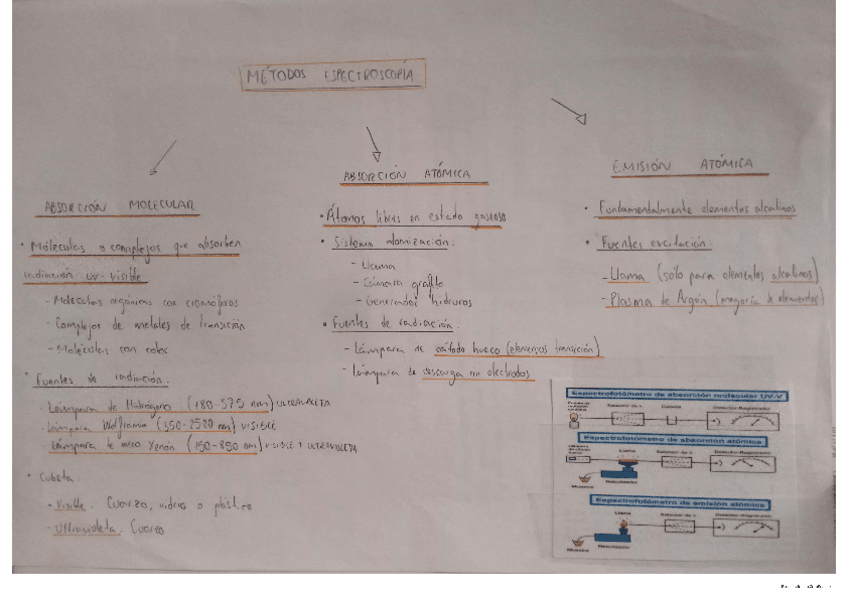 MÉTODOS ESPECTROSCOPÍA
ABSORCIÓN MOLECULAR
• Moléculas o complejos que absorben
radiación UV-visible
- Moléculas orgánicas con cromóforos
- Complejos de metales de transición
- Moléculas con color
• Fuentes de radiación:
- Lámpara de Hidrógeno (180-375 nm) ULTRAVIOLETA
- Lámpara Wolframio (350-2500 nm) VISIBLE
- Lámpara de arco Xenón (150-850 nm) VISIBLE Y ULTRAVIOLETA
• Cubeta
- Visible. Cuarzo, vidrio o plástico
- Ultravioleta. Cuarzo
ABSORCIÓN ATÓMICA
• Átomos libres en estado gaseoso
• Sistema atomización:
- Llama
- Cámara grafito
- Generador hidruros
• Fuentes de radiación:
- Lámpara de cátodo hueco (elementos transición)
- Lámpara de descarga sin electrodos
EMISIÓN ATÓMICA
• Fundamentalmente elementos alcalinos
• Fuentes excitación:
- Llama (sólo para elementos alcalinos)
- Plasma de Argón (mayoría de elementos)
Espectrofotómetro de absorción molecular UV-V
Selector de λ Cubeta Detector-Registrador
Espectrofotómetro de absorción atómica
Llama Selector de λ Detector-Registrador
Nebulizador
Muestra
Espectrofotómetro de emisión atómica
Llama Selector de λ Detector-Registrador
Nebulizador
Muestra